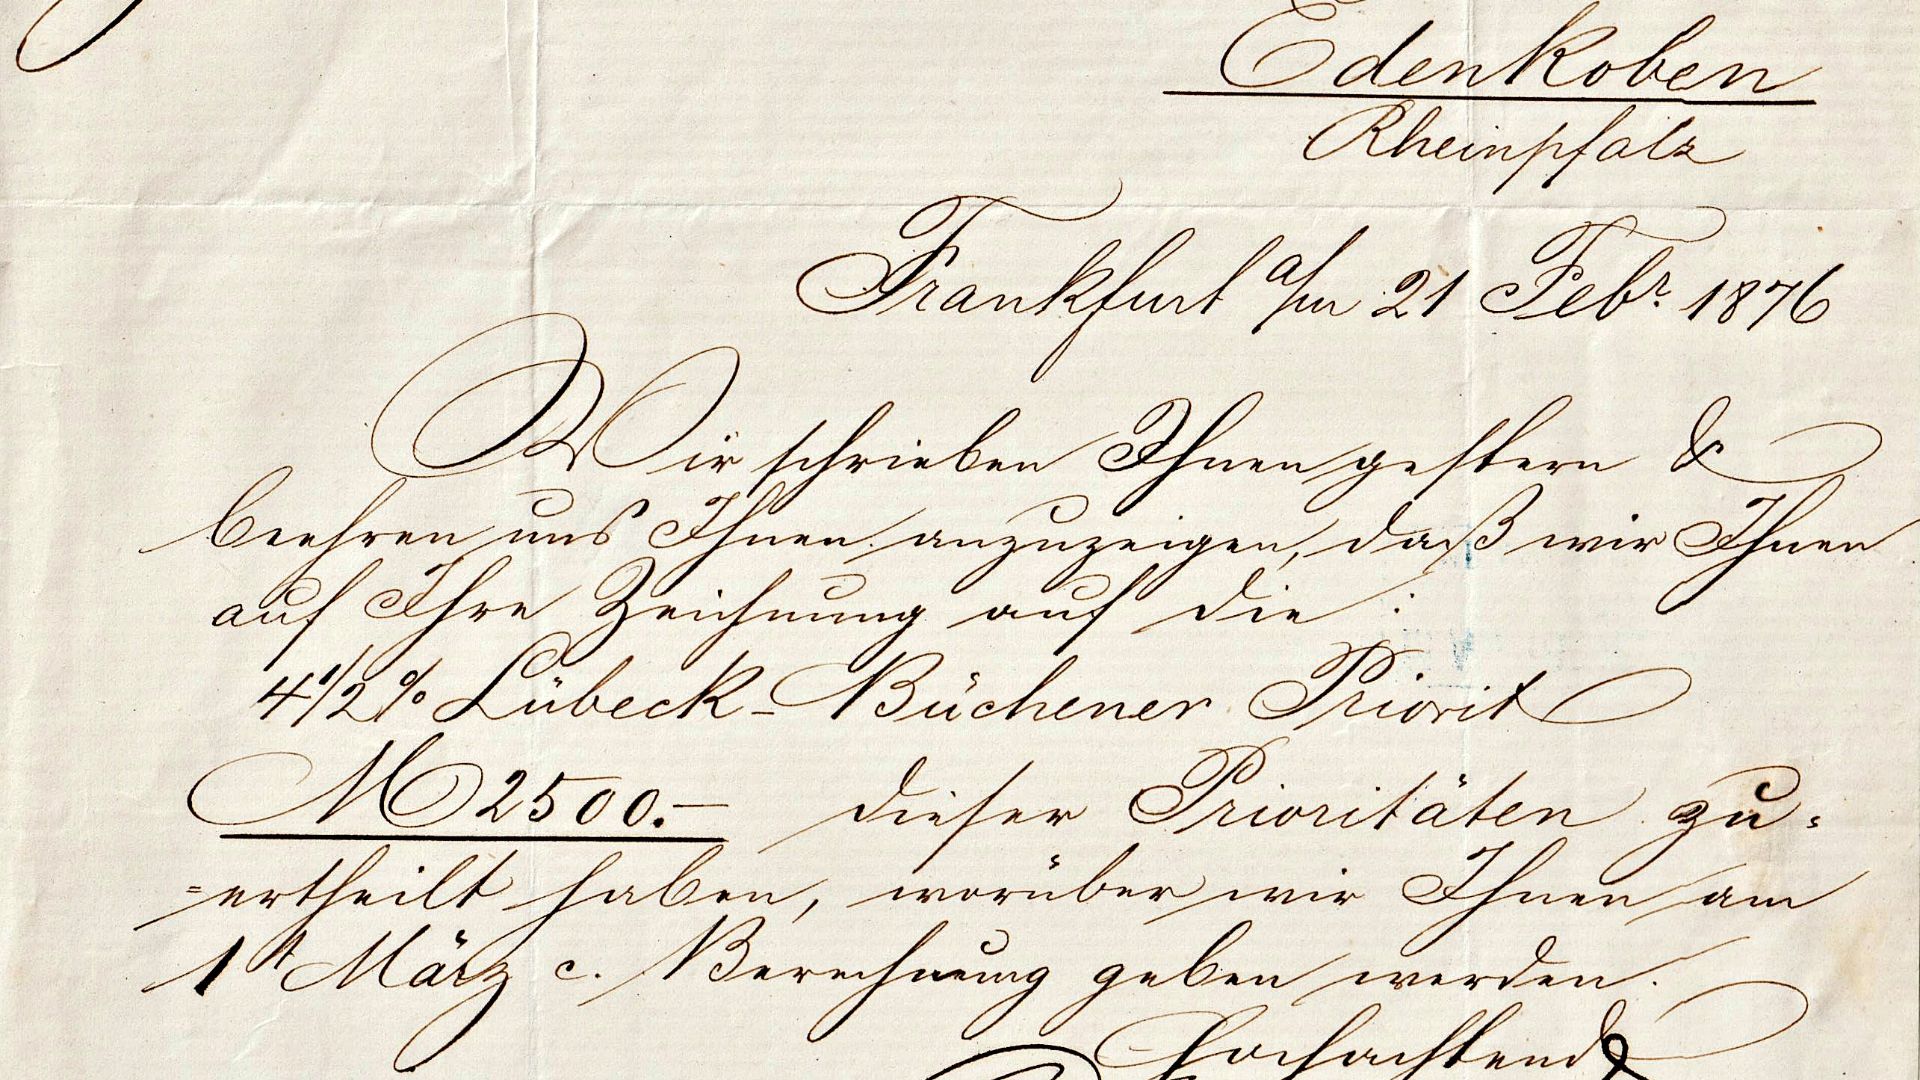 Edenkoben
Rheinpfalz
Frankfurt a/m 21 Febr. 1876
Wir schrieben Ihnen gestern &
beehren uns Ihnen anzuzeigen, daß wir Ihnen
auf Ihre Zeichnung auf die :
4 1/2 % Lübeck-Büchener Priorit
M 2500.— dieser Prioritäten zu=
=ertheilt haben, worüber wir Ihnen am
1t März c. Berechnung geben werden.
Hochachtend